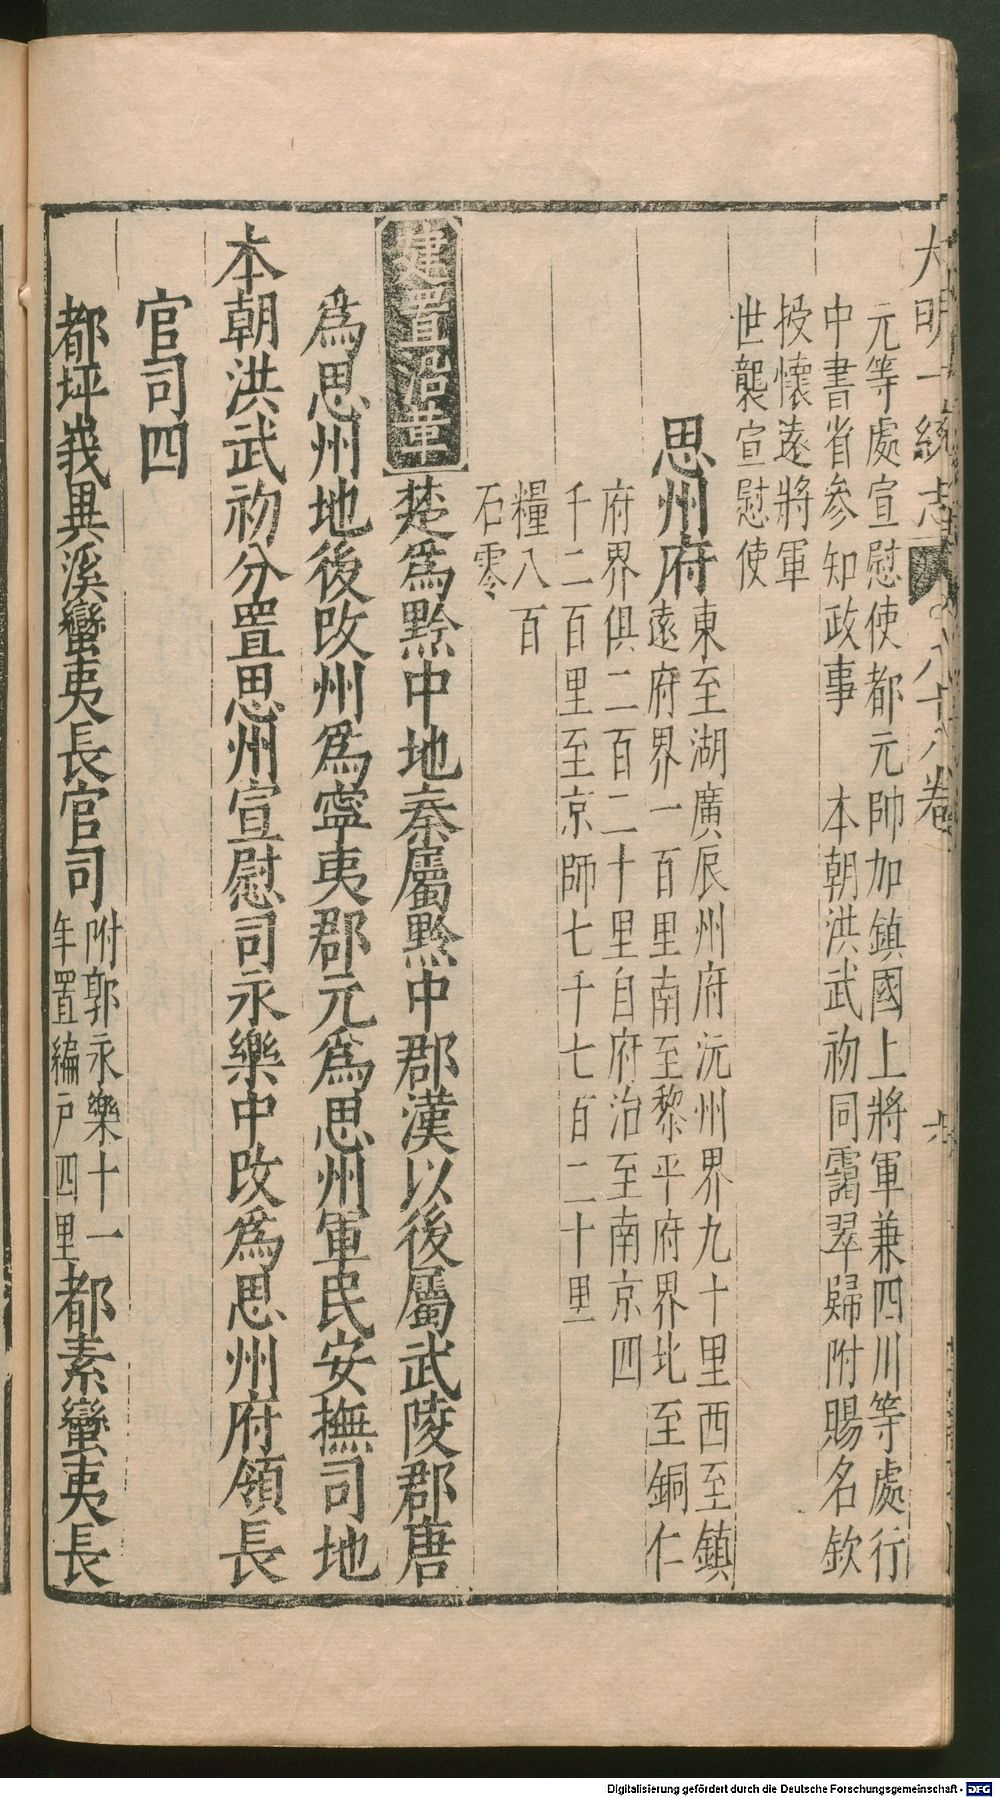 大明一統志 八十八卷
元等處宣慰使都元帥加鎮國上將軍兼四川等處行
中書省參知政事 本朝洪武初同靄翠歸附賜名欽
授懷遠將軍
世襲宣慰使
思州府
東至湖廣辰州府沅州界九十里西至鎮
遠府界一百里南至黎平府界北至銅仁
府界俱二百二十里自府治至南京四
千二百里至京師七千七百二十里
糧八百
石零
建置沿革
楚爲黔中地秦屬黔中郡漢以後屬武陵郡唐
爲思州地後改州爲寧夷郡元爲思州軍民安撫司地
本朝洪武初分置思州宣慰司永樂中改爲思州府領長
官司四
都坪峩異溪蠻夷長官司
附郭永樂十一
年置編戶四里
都素蠻夷長
Digitalisierung gefördert durch die Deutsche Forschungsgemeinschaft - DFG